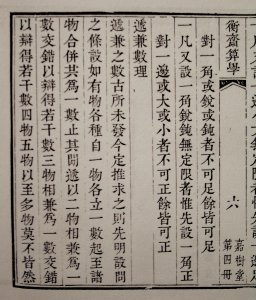 衡齋算學 六 嘉樹堂 第四冊
對一角或銳或鈍者不可足餘皆可足
一凡又設一角銳鈍無定限者惟先設一角正
對一邊或大或小者不可正餘皆可正
遞兼數理
遞兼之數古所未發今定推求之則先明設問
之條設如有物各種自一物各立一數起至諸
物合併共爲一數止其間遞以二物相兼爲一
數交錯以辯得若干數三物相兼爲一數交錯
以辯得若干數四物五物以至多物莫不皆然